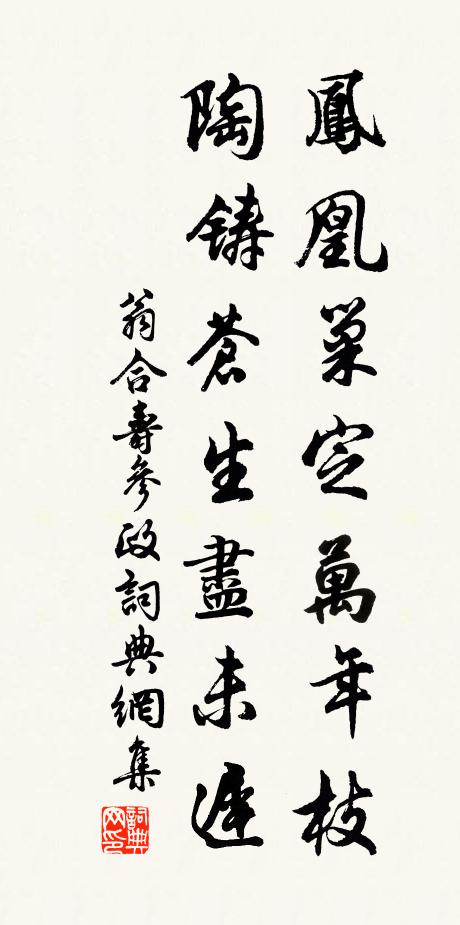 鳳凰巢定萬年枝
陶鑄蒼生盡未遲
翁合壽參政詞典網集
詞典網印